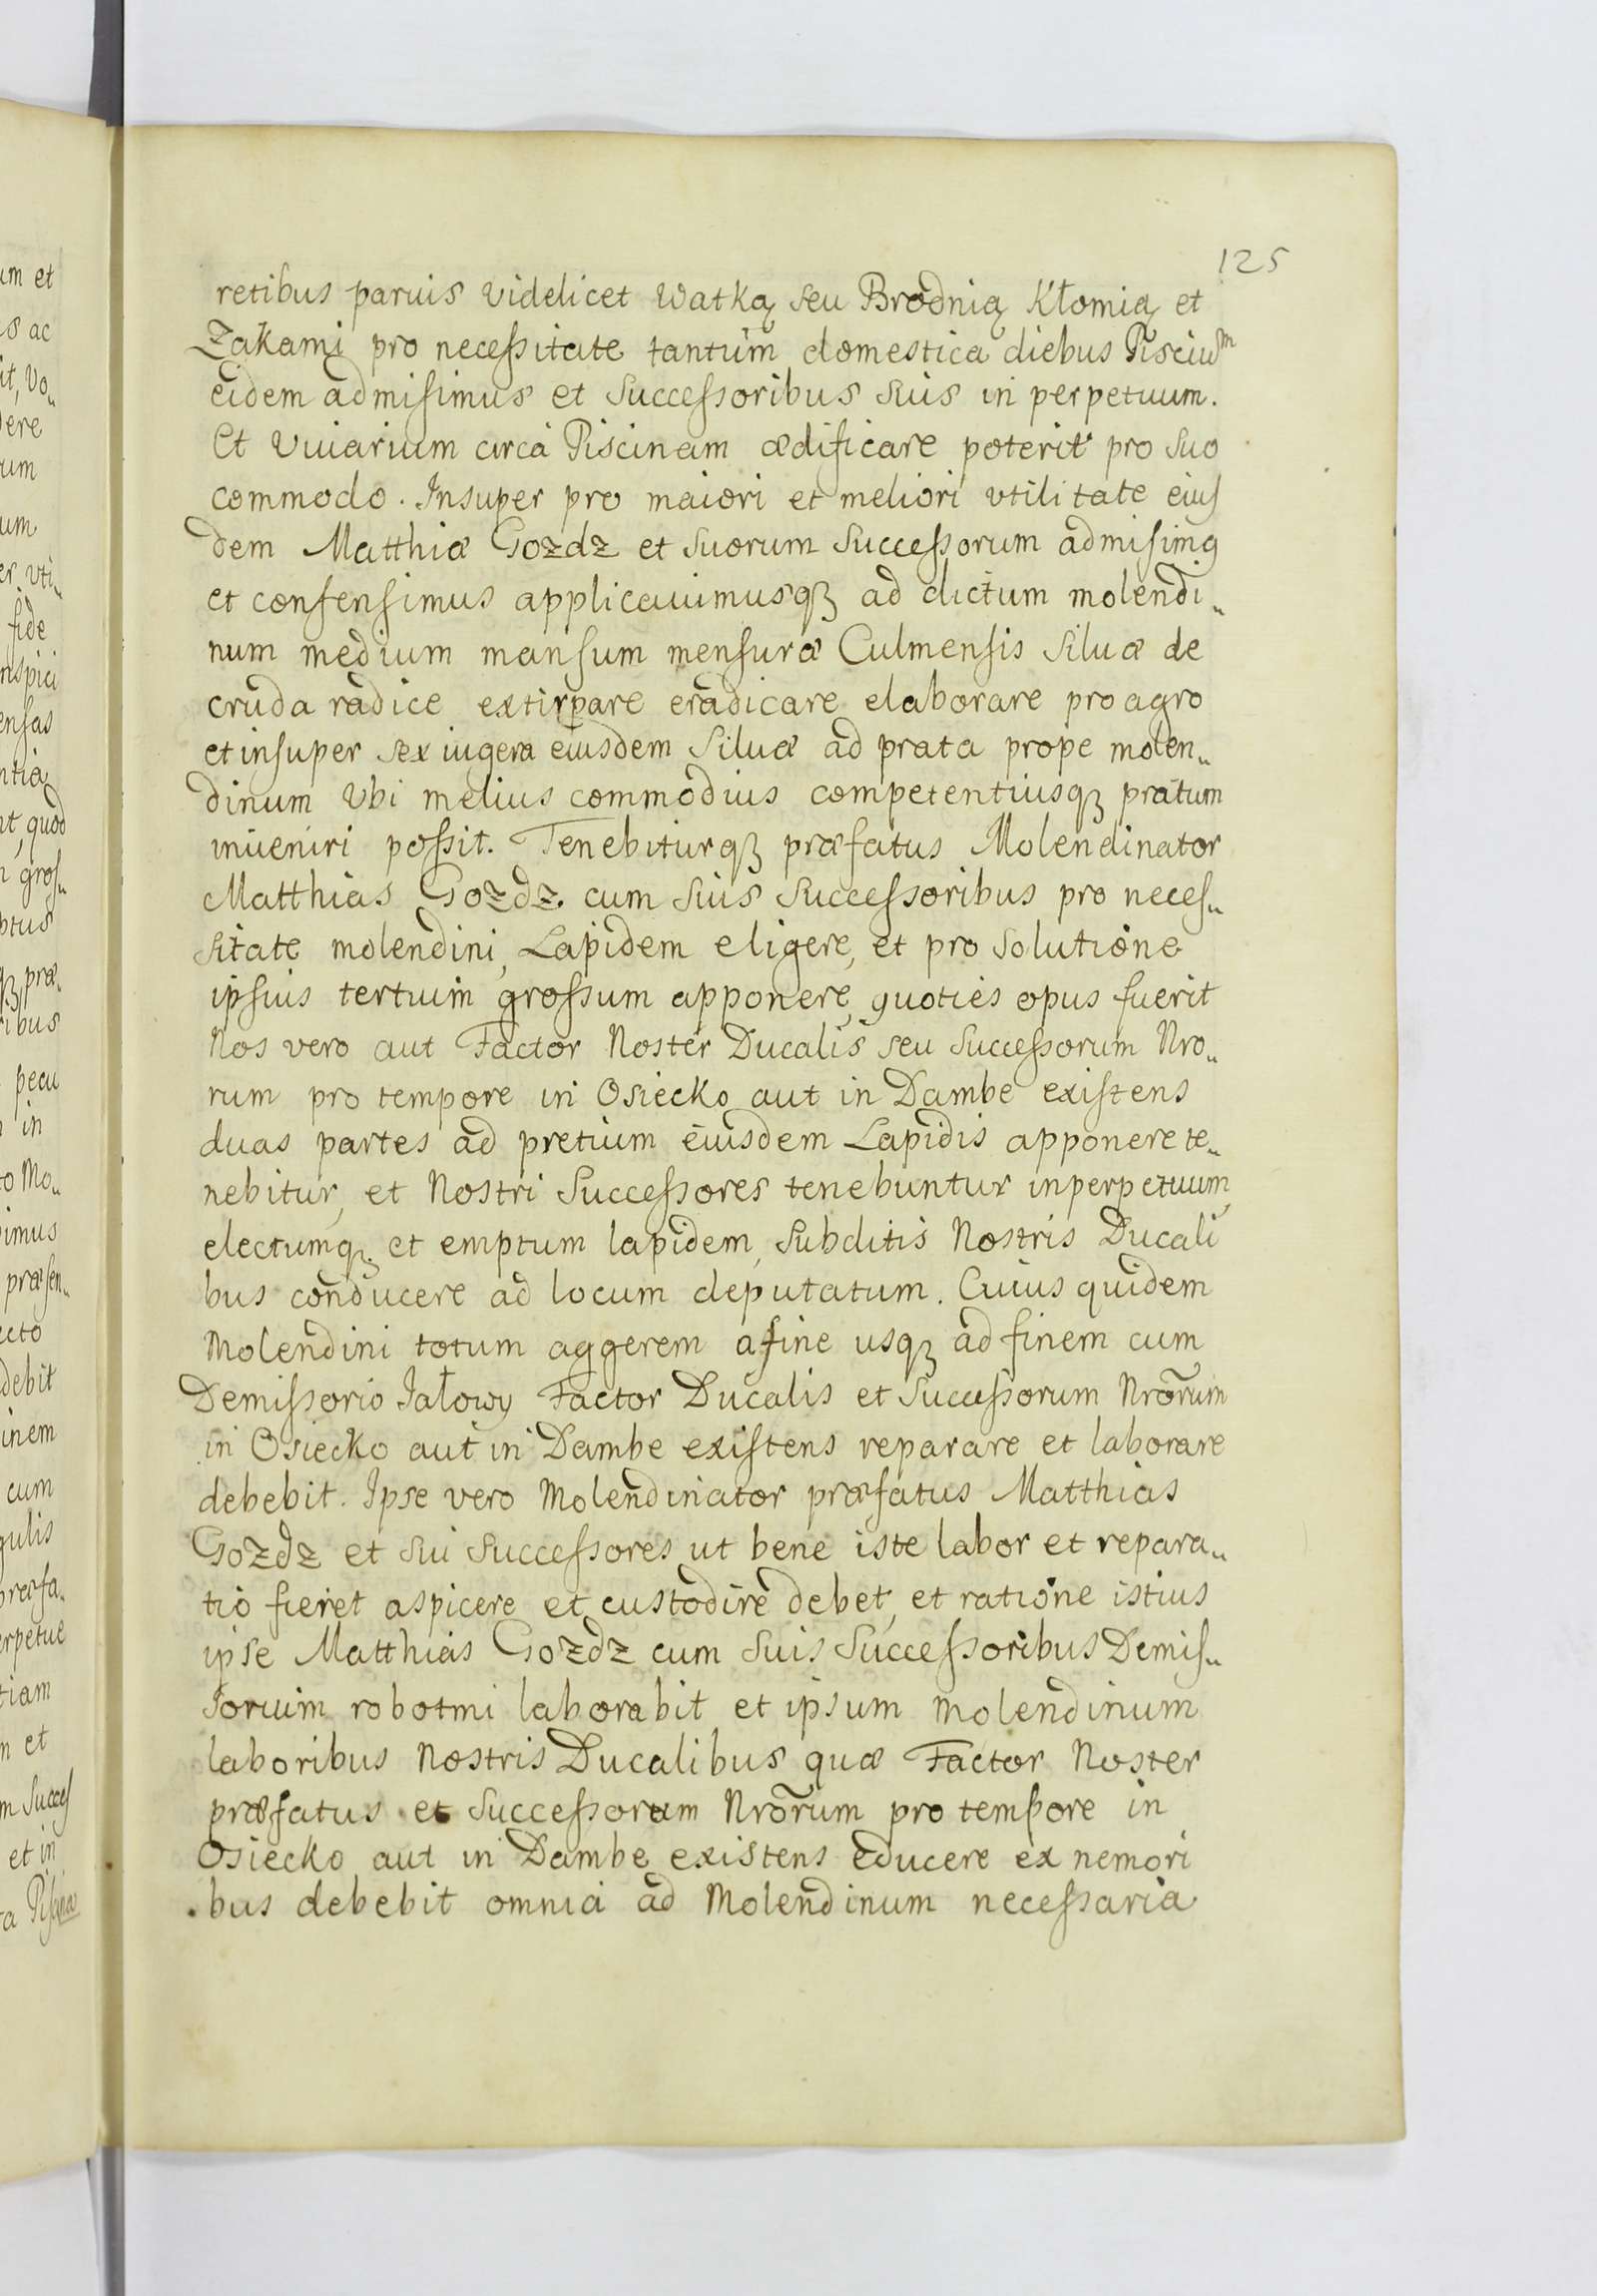 125
retibus paruis videlicet Watką seu Brodnią Kłomią et
Zakami pro necessitate tantum domestica diebus Pisciu͞m
eidem admisimus et successoribus suis in perpetuum.
Et viuarium circa Piscinam ædificare poterit pro suo
commodo. Insuper pro maiori et meliori vtilitate eius
dem Matthiæ Gozdz et suorum successorum admisimꝯ
et consensimus applicauimusqꝫ ad dictum molendi„
num medium mansum mensuræ Culmensis siluæ de
cruda radice extirpare eradicare elaborare pro agro
et insuper sex iugera eiusdem siluæ ad prata prope molen„
dinum vbi melius commodius competentiusqꝫ pratum
inueniri possit. Tenebiturqꝫ præfatus Molendinator
Matthias Gozdz. cum suis successoribus pro neces„
sitate molendini, Lapidem eligere, et pro solutione
ipsius tertium grossum apponere, quoties opus fuerit
Nos vero aut Factor Noster Ducalis seu successorum Nro„
rum pro tempore in Osiecko aut in Dambe existens
duas partes ad pretium eiusdem Lapidis apponere te„
nebitur, et Nostri successores tenebuntur in perpetuum,
electumqꝫ et emptum lapidem, subditis Nostris Ducali
bus conducere ad locum deputatum. Cuius quidem
Molendini totum aggerem a fine usqꝫ ad finem cum
Demissorio Jałowy Factor Ducalis et successorum Nrõrum
in Osiecko aut in Dambe existens reparare et laborare
debebit. Ipse vero Molendinator præfatus Matthias
Gozdz et sui successores ut bene iste labor et repara„
tio fieret aspicere et custodire debet, et ratione istius
ipse Matthias Gozdz cum suis successoribus Demis„
sorium robotmi laborabit et ipsum molendinum
laboribus Nostris Ducalibus quæ Factor Noster
præfatus et successorum Nrõrum pro tempore in
Osiecko aut in Dambe existens educere ex nemori
bus debebit omnia ad Molendinum necessaria